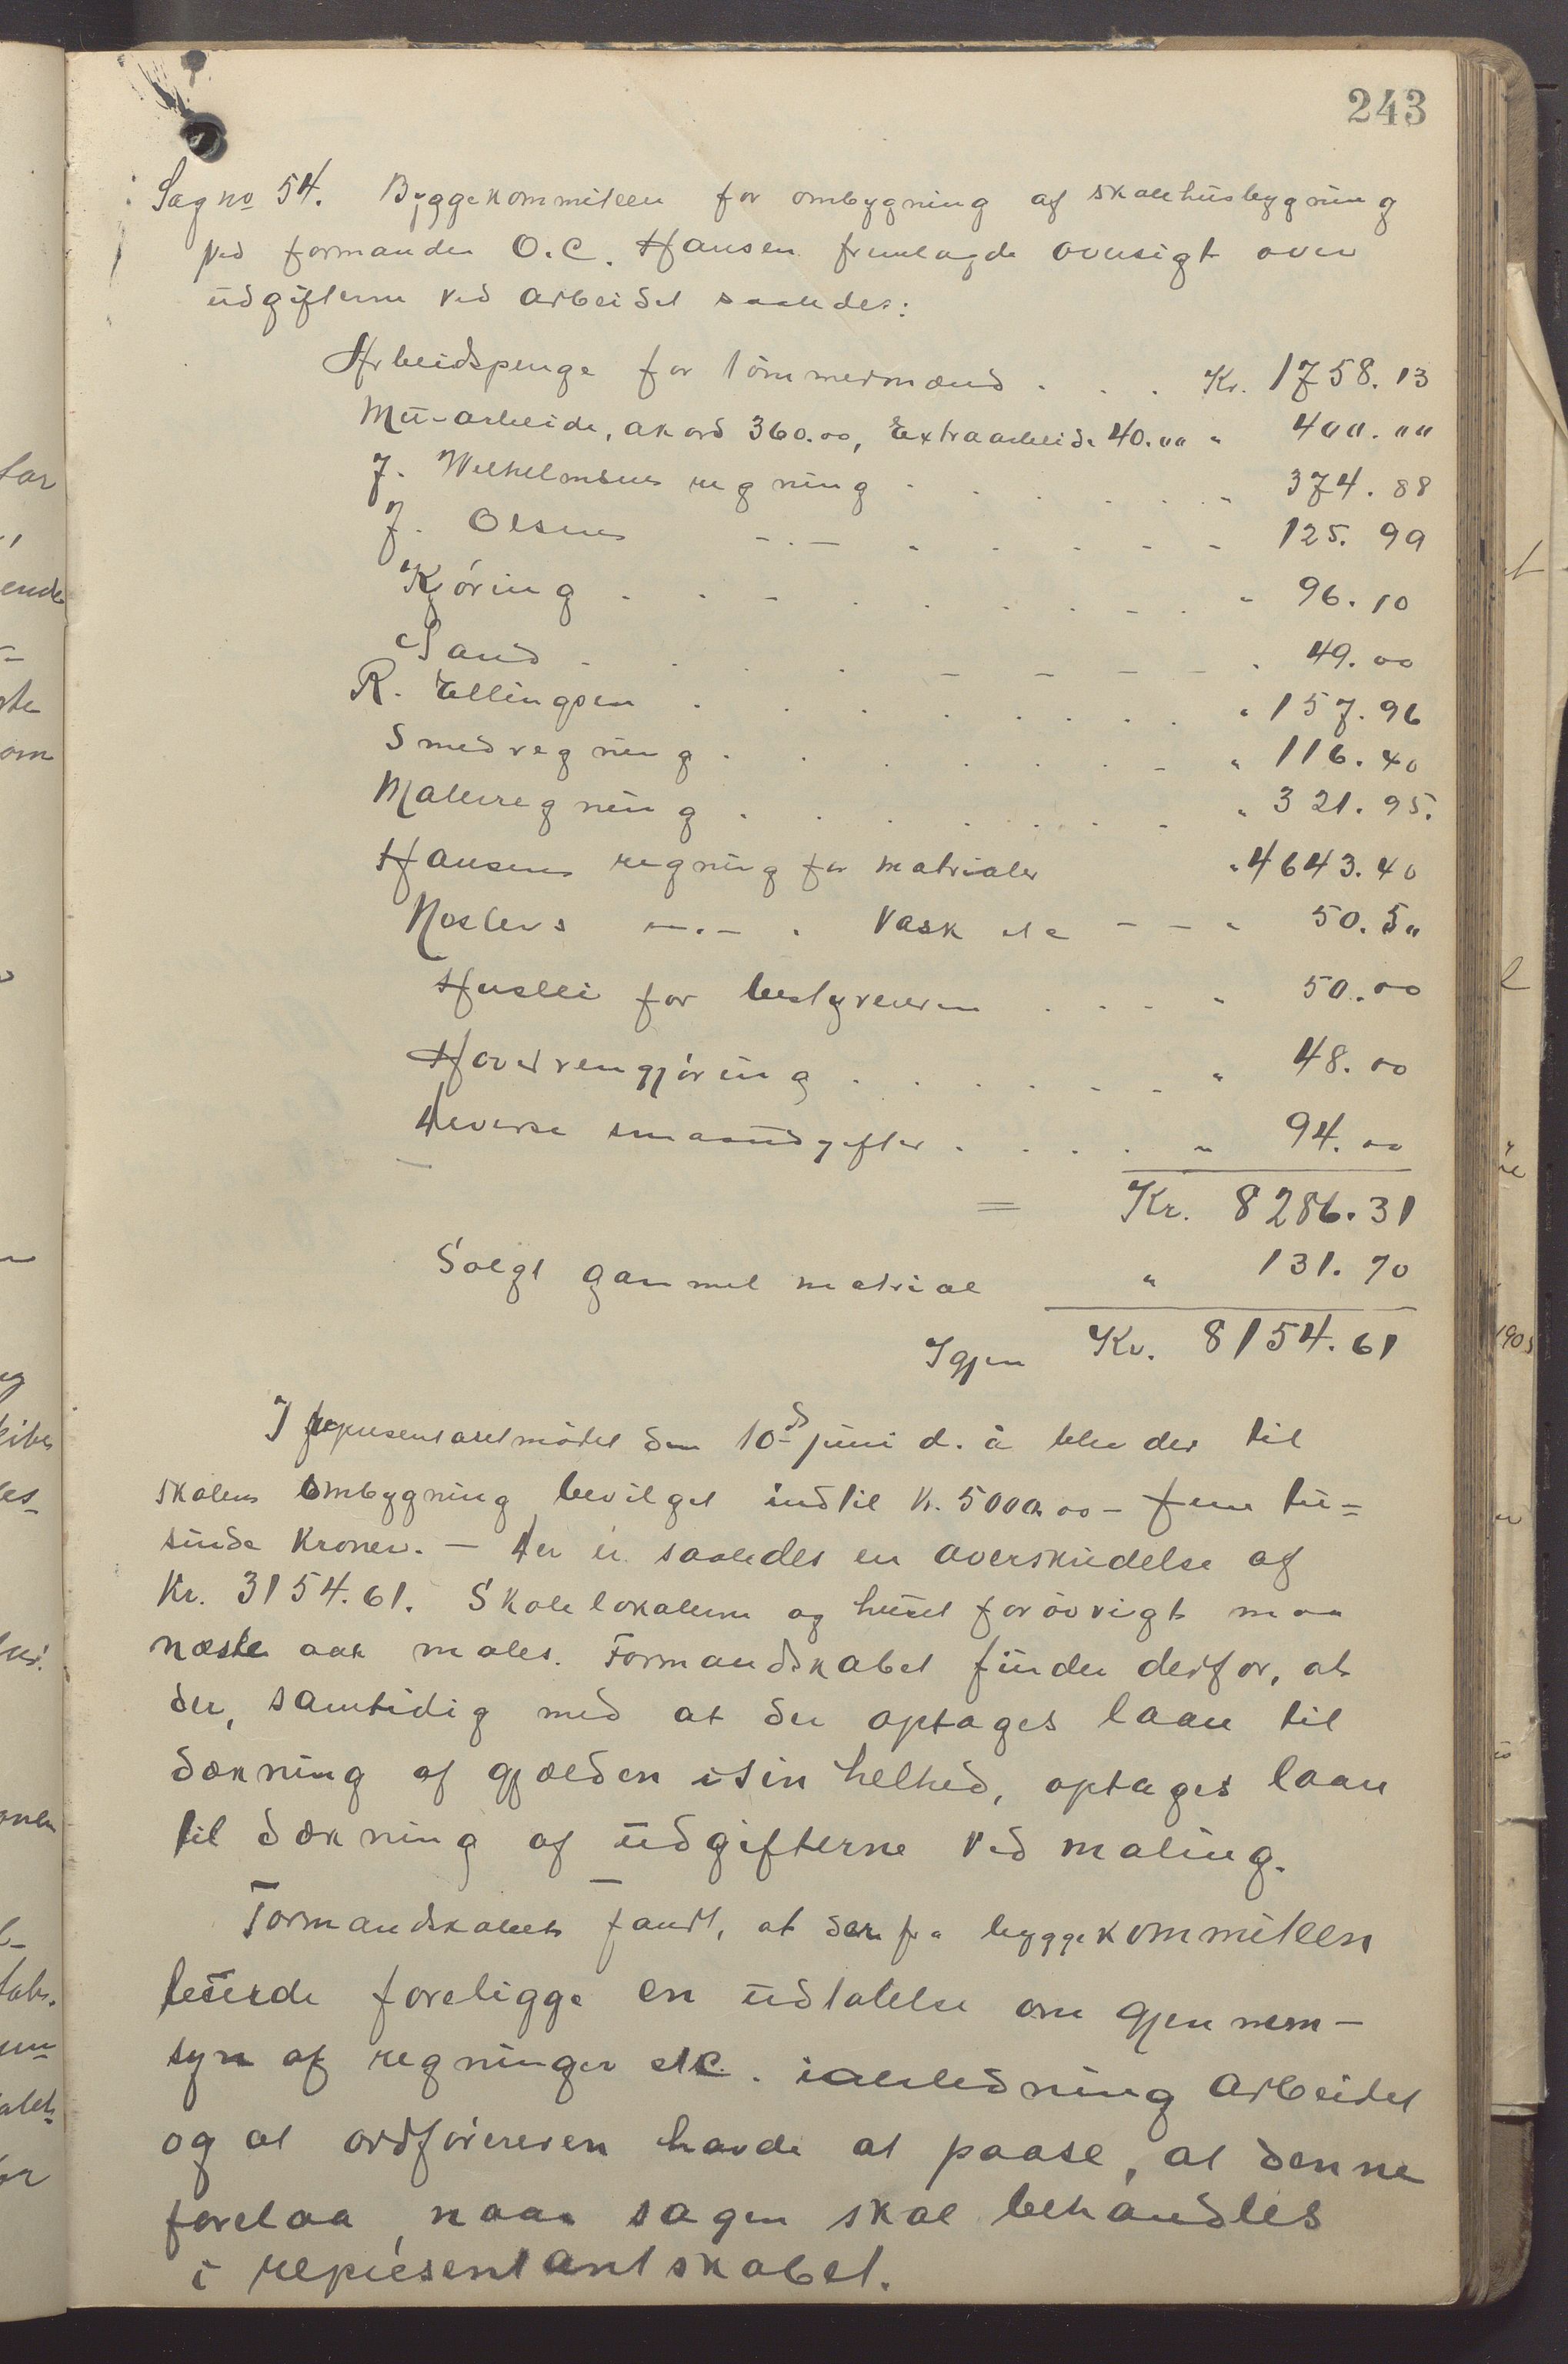 243
Sag no 54. Byggekommiteen for ombygning af skolehusbygning
ved formanden O.C. Hansen fremlagde oversigt over
udgifterne ved arbeidet saaledes:
Arbeidspenge for tømmermænd . . . Kr. 1758.13
Mu-arbeide, akord 360.00, Extraarbeide 40."" " 400.""
J. Wilhelmsens regning . . . . . " 374.88
J. Olsens -.- . . . . . 125.99
Kjøring . . . . . . . . " 96.10
Sand . . . . . . . . 49.00
R. Ellingsen . . . . . . . " 157.96
Smedregning . . . . . . . " 116.40
Malerregning . . . . . . . " 321.95.
Hansens regning for matrialer " 4643.40
-.- . Vask etc - - " 50.5"
Husleie for bestyreren . . . " 50.00
Hovedrengjøring . . . . . " 48.00
diverse smaaudgifter . . . . " 94.00
= Kr. 8286.31
Solgt gammel matrial " 131.70
Igjen Kr. 8154.61
I representantmødet den 10d juni d. å blev der til
skolens ombygning bevilget indtil Kr. 5000.00 - fem tu=
sinde Kroner. - der er saaledes en overskridelse af
Kr. 3154.61. Skolelokalerne og huset forøvrigt maa
næste aar males. Formandskabet finder derfor, at
der, samtidig med at der optages laan til
dækning af gjælden i sin helhed, optages laan
til dækning af udgifterne ved maling.
Formandskabet fandt, at der fra byggekommiteen
burde foreligge en udtalelse om gjennem-
syn af regninger etc. ianledning arbeidet
og at ordføreren havde at paase, at denne
forelaa, naar sagen skal behandles
i representantskabet.